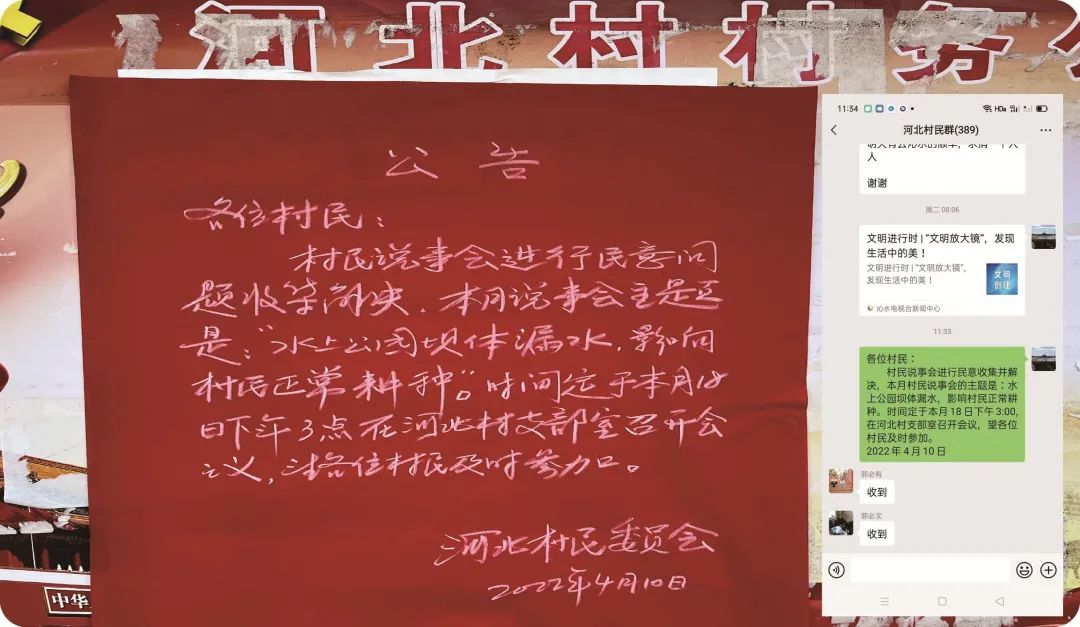 河北村村务公
公 告
各位村民：
村民说事会进行民意问
题收集解决．本月说事会主题
是："水上公园坝体漏水，影响
村民正常耕种"。时间定于本月18
日下午3点在河北村支部室召开会
议，请各位村民及时参加。
河北村民委员会
2022年4月10日
中华
11:34
HD
河北村民群(389)
人
谢谢
周二 08:06
文明进行时 | "文明放大镜"，发现
生活中的美！
文明进行时 | "文明放大镜"，
发现生活中的美！
文明
创建
沁水电视台新闻中心
11:33
各位村民：
村民说事会进行民意收集并解
决，本月村民说事会的主题是：水
上公园坝体漏水，影响村民正常耕
种。时间定于本月18日下午3:00,
在河北村支部室召开会议，望各位
村民及时参加。
2022年4月10日
郭必有
收到
郭必文
收到